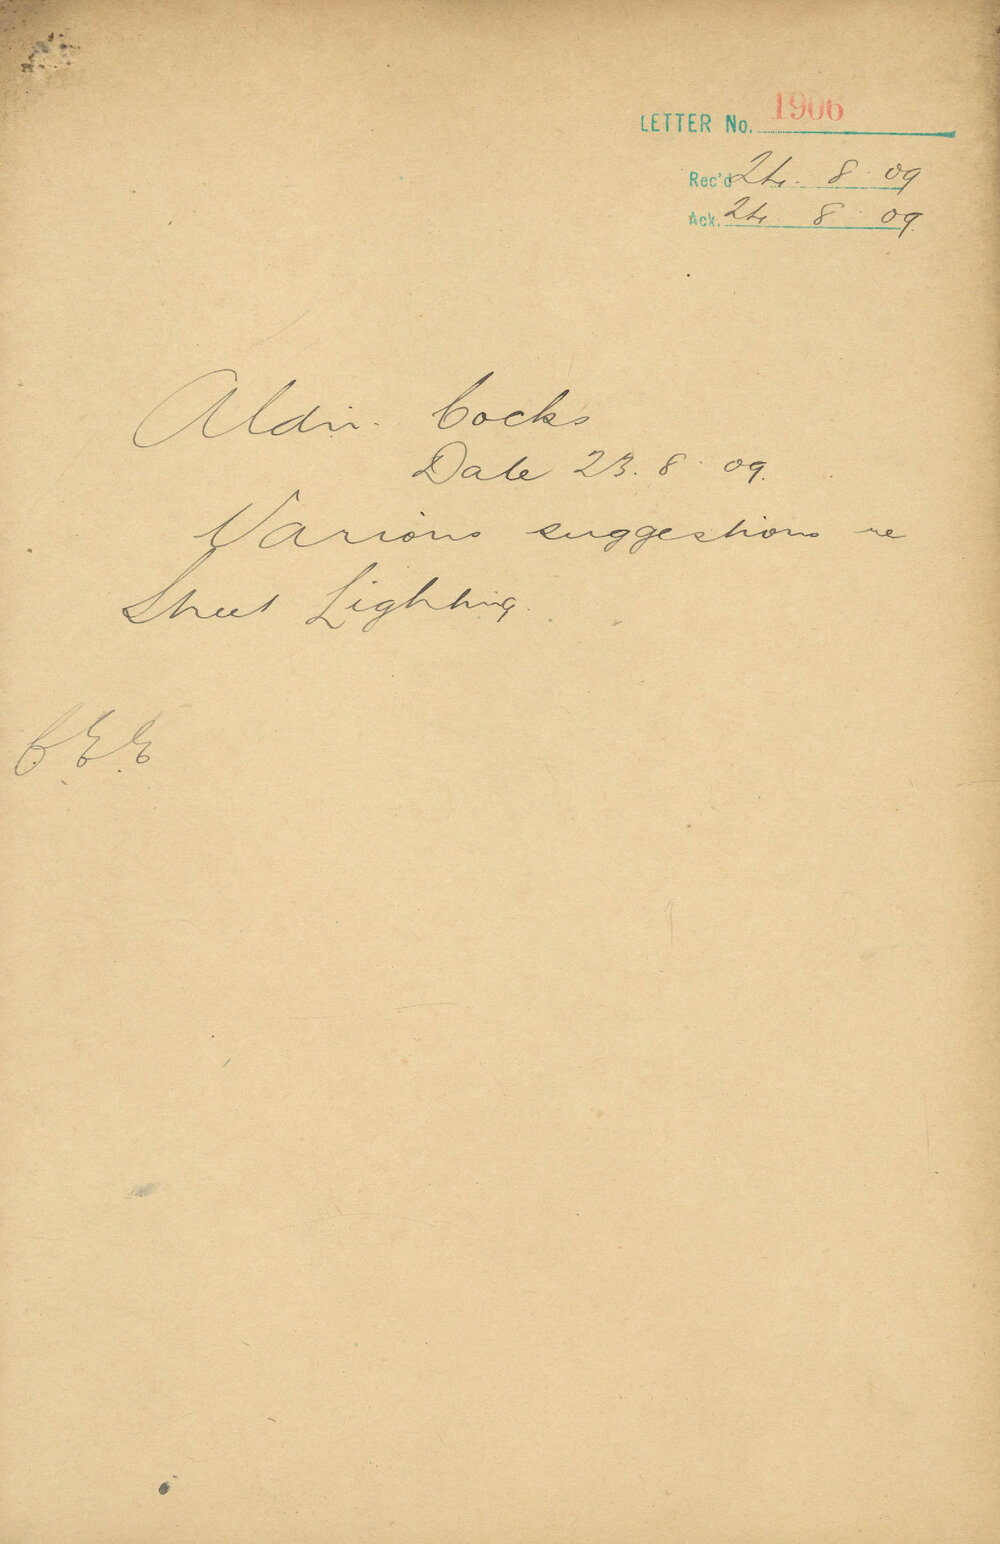 LETTER No. 1906
Rec'd 24. 8. 09
Ack. 24 8. 09
Aldn. Cocks
Date 23. 8. 09.
Various suggestions re
Street Lighting.
C.E.E